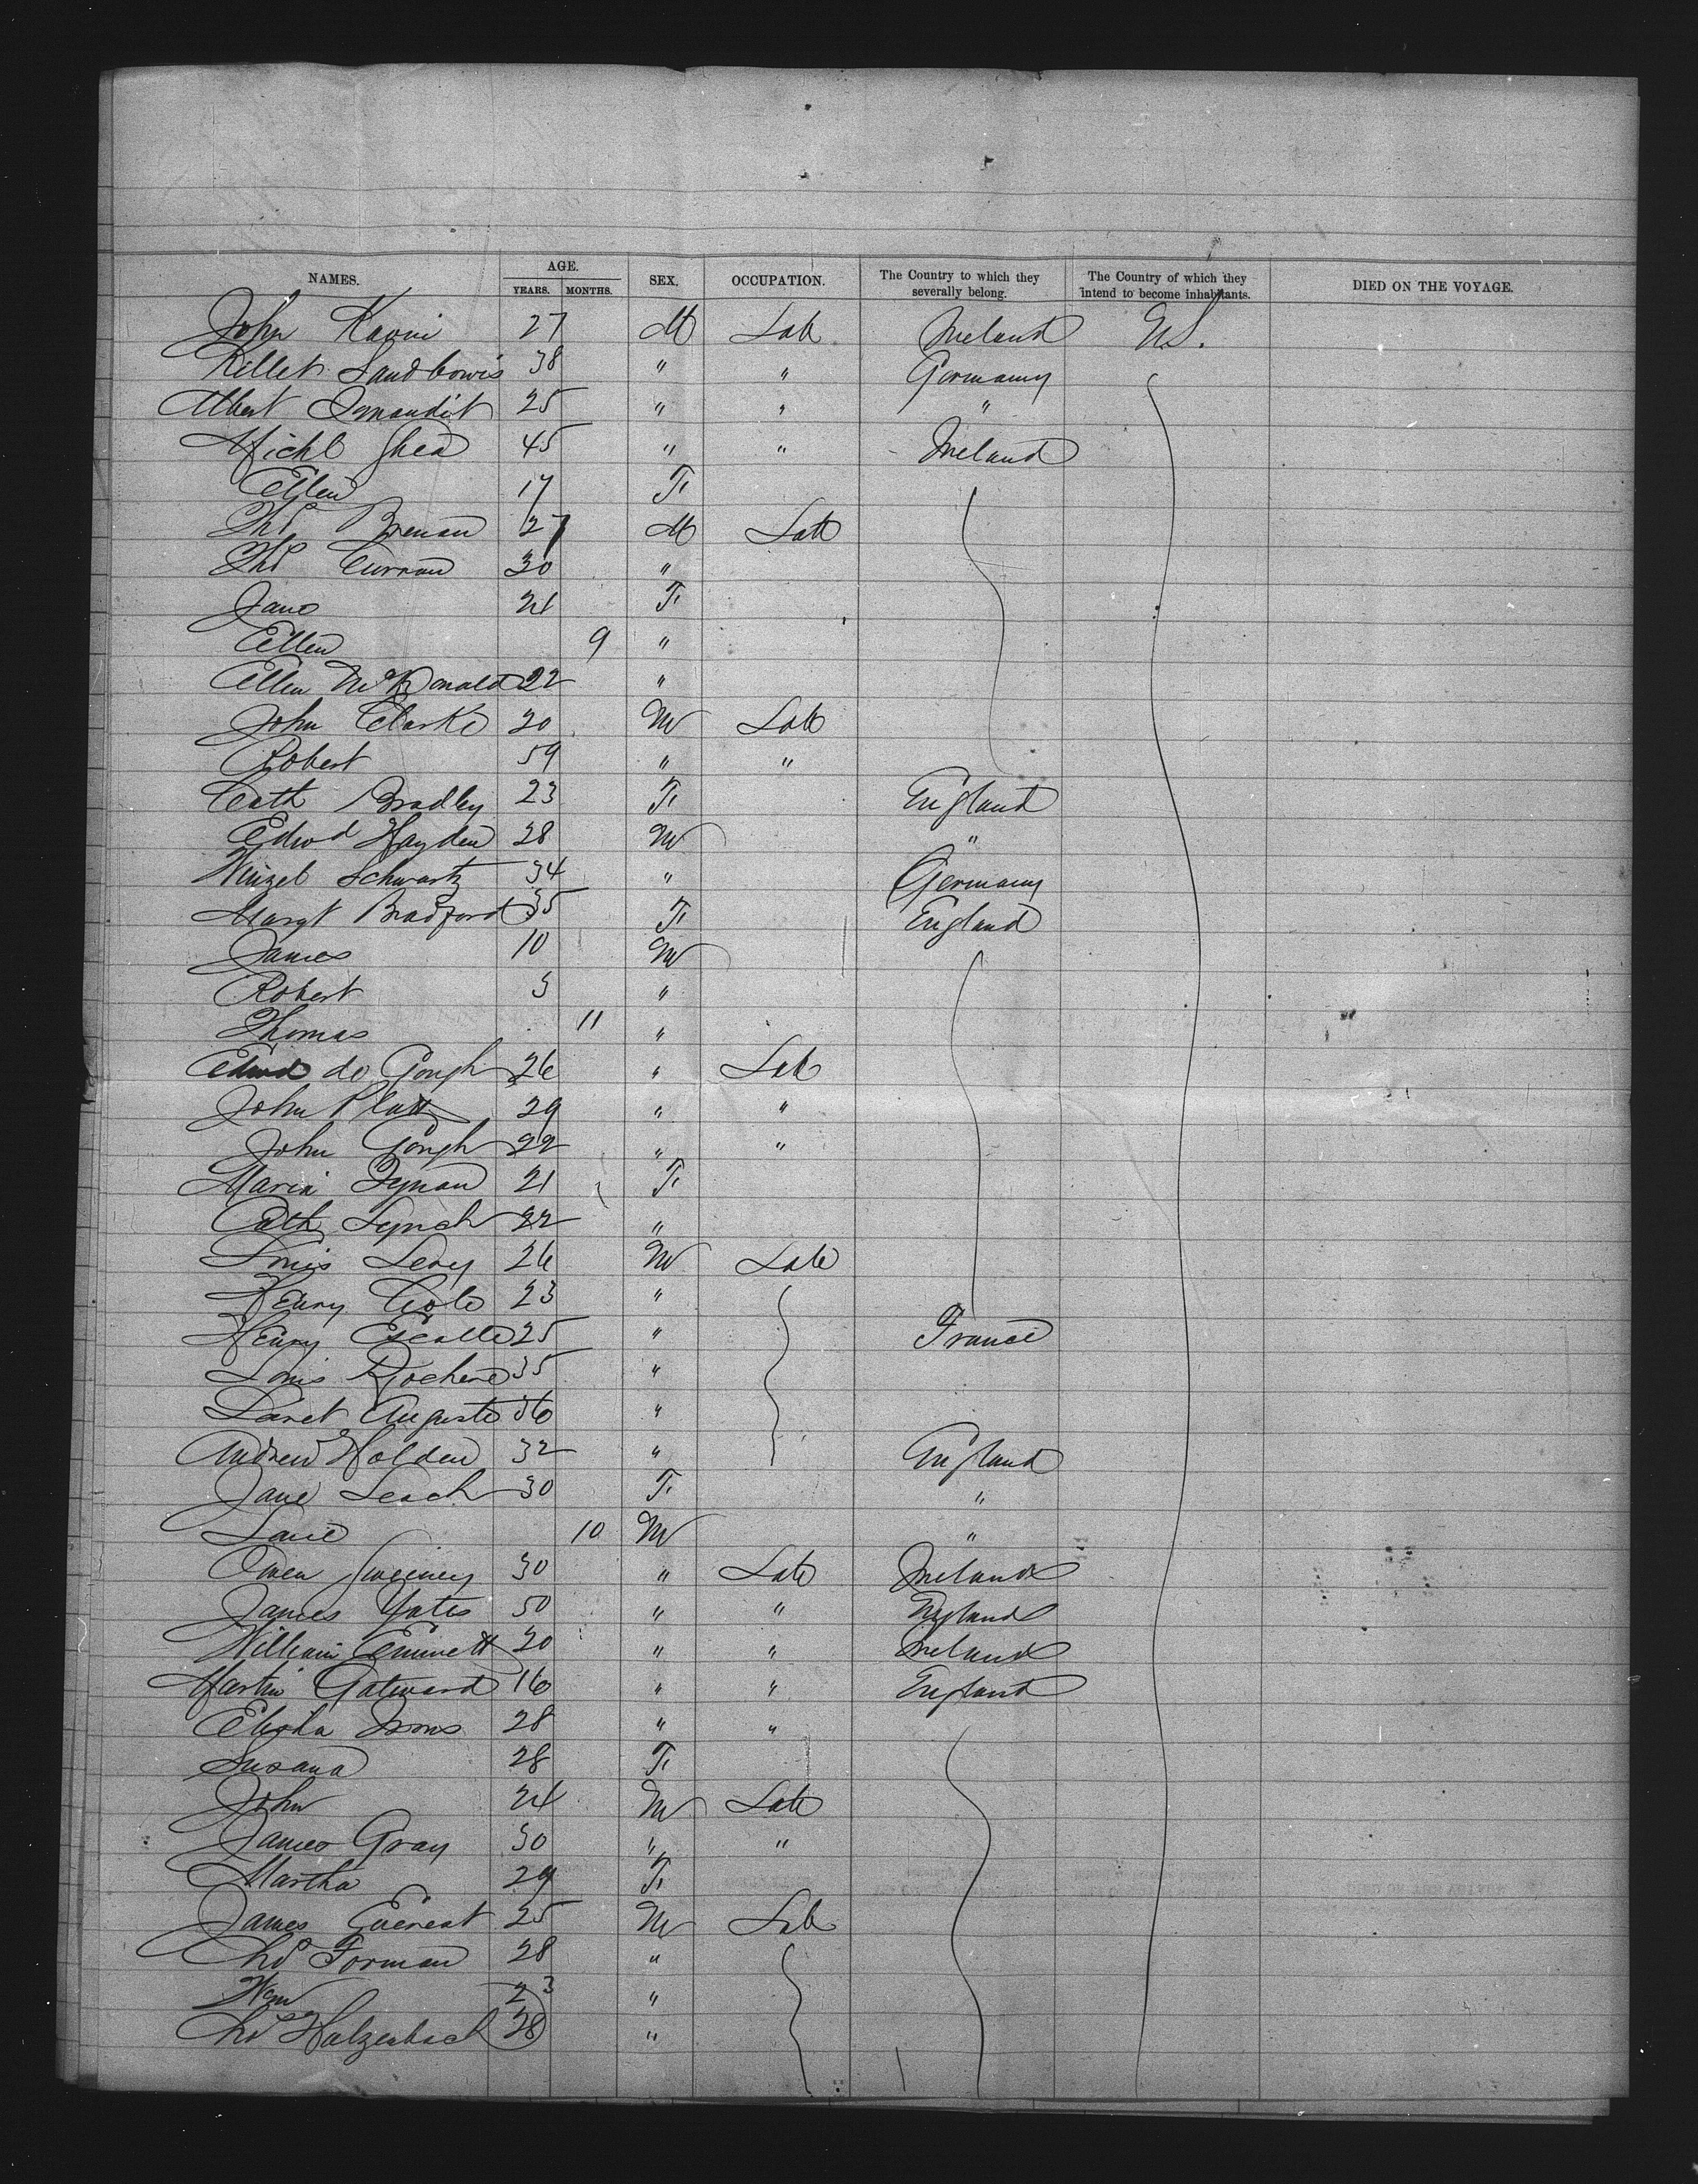 NAMES. AGE. SEX. OCCUPATION. The Country to which they severally belong. The Country of which they intend to become inhabitants. DIED ON THE VOYAGE.
YEARS. MONTHS.
John 27 M Lab Ireland U.S.
38 " " Germany
Albert 25 " " "
Michl Shea 45 " " Ireland
Ellen 17 F
Thos Brenan 27 M Lab
Thos Curran 30 "
Jane 24 F
Ellen 9 "
Ellen McDonald 22 "
John Clarke 20 M Lab
Robert 59 " "
Cath Bradley 23 F England
Edwd Hayden 28 M "
Winzel Schwartz 34 " Germany
Margt Bradford 35 F England
James 10 M
Robert 3 "
Thomas 11 "
Edwd de Gough 26 " Lab
John Platt 29 " "
John Gough 22 " "
Maria Tynan 21 F
Cath Lynch 22 "
Louis Levy 26 M Lab
Henry Cole 23 "
Henry Escalle 25 " France
Louis 35 "
Auguste 36 "
Andrew Holden 32 " England
Jane Leach 30 F "
10 M "
Owen Sweeney 30 " Lab Ireland
James Yates 50 " " England
William Emmett 20 " " Ireland
Martin Gatward 16 " " England
Elisha Irons 28 " "
Susana 28 F
John 24 M Lab
James Gray 30 " "
Martha 29 F
James Everest 25 M Lab
Thos Forman 28 "
Wm 23 "
Holzenbach 28 "